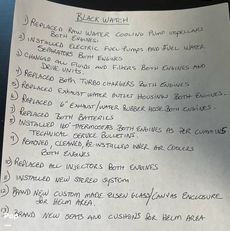 BLACK WATCH
1) REPLACED RAW WATER COOLING PUMP IMPELLARS
BOTH ENGINES.
2) INSTALLED ELECTRIC FUEL PUMPS AND FUEL WATER
SEPARATORS BOTH ENGINES
3) CHANGED ALL FLUIDS AND FILTERS BOTH ENGINES AND
DRIVE UNITS.
4) REPLACED BOTH TURBO CHARGERS BOTH ENGINES
5) REPLACED EXHAUST WATER OUTLET HOUSINGS BOTH ENGINES.
6) REPLACED 6" EXHAUST/WATER RUBBER HOSE BOTH ENGINES.
7) REPLACED BOTH BATTERIES
8) INSTALLED 160° THERMOSTATS BOTH ENGINES AS PER CUMMINS
TECHNICAL SERVICE BULLETINS
9) REMOVED, CLEANED, RE-INSTALLED INNER AIR COOLERS
BOTH ENGINES
10) REPLACED ALL INJECTORS BOTH ENGINES
11) INSTALLED NEW STEREO SYSTEM
12) BRAND NEW CUSTOM MADE EISEN GLASS/CANVAS ENCLOSURE
FOR HELM AREA.
13) BRAND NEW SEATS AND CUSHIONS FOR HELM AREA